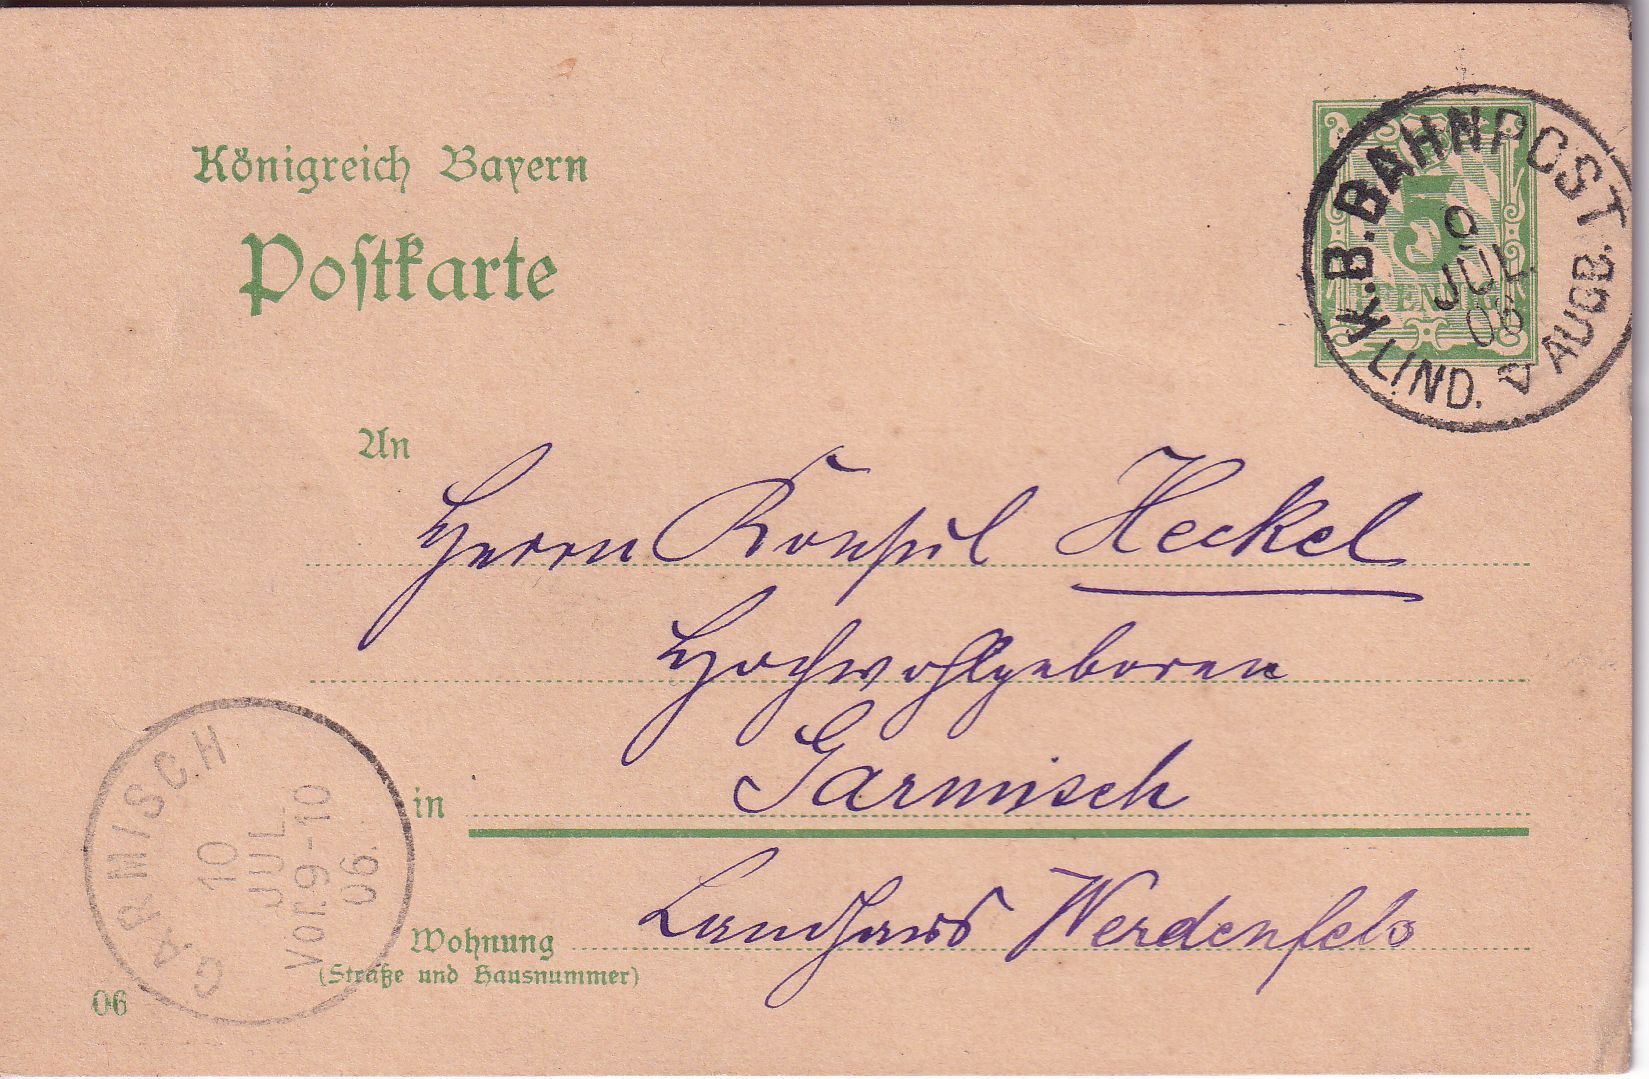 Königreich Bayern
Postkarte
5
PFENNIG
K.B.BAHNPOST.
9
JUL.
06
LIND. AUGB.
An
Herrn Konsul Heckel
Hochwohlgeboren
in Garmisch
Landhaus Werdenfels
Wohnung
(Straße und Hausnummer)
GARMISCH
10
JUL.
Vor.9-10
06.
06